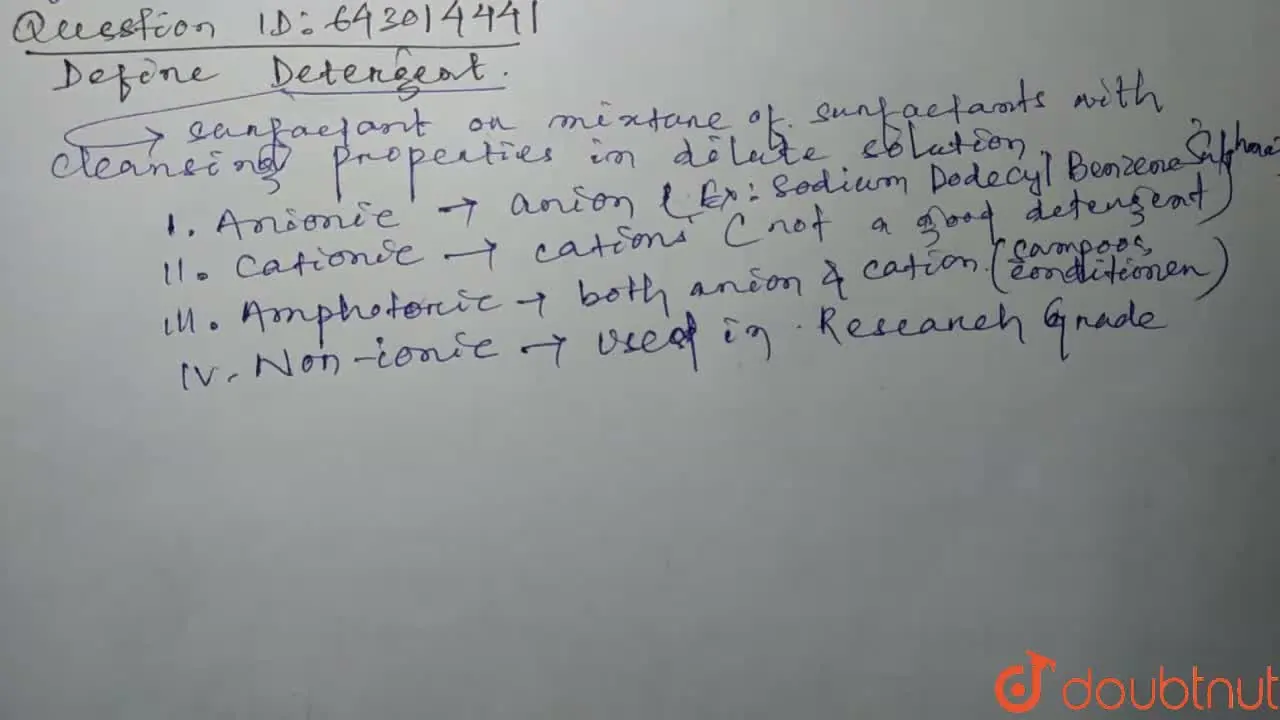 Question ID: 643014441
Define Detergent.
→ surfactant or mixture of surfactants with
cleansing properties in dilute solution.
I. Anionic → anion (Ex: Sodium Dodecyl Benzene Sulphonate
II. Cationic → cations (not a good detergent)
III. Amphoteric → both anion & cation (sampoos, conditioner)
IV. Non-ionic → Used in Research Grade
doubtnut